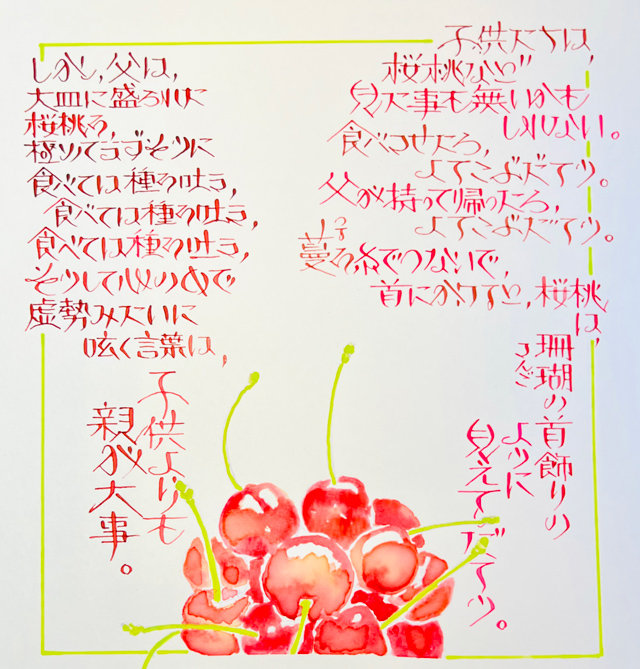 子供たちは、
桜桃など
見た事も無いかも
しれない。
食べさせたら、
よろこぶだろう。
父が持って帰ったら、
よろこぶだろう。
つる
蔓を糸でつないで、
首にかけると、桜桃
は、
珊瑚の首飾りの
さんご
ように
見えるだろう。
しかし、父は、
大皿に盛られた
桜桃を、
極めてまずそうに
食べては種を吐き、
食べては種を吐き、
食べては種を吐き、
そうして心の中で
虚勢みたいに
呟く言葉は、
子供よりも
親が大事。